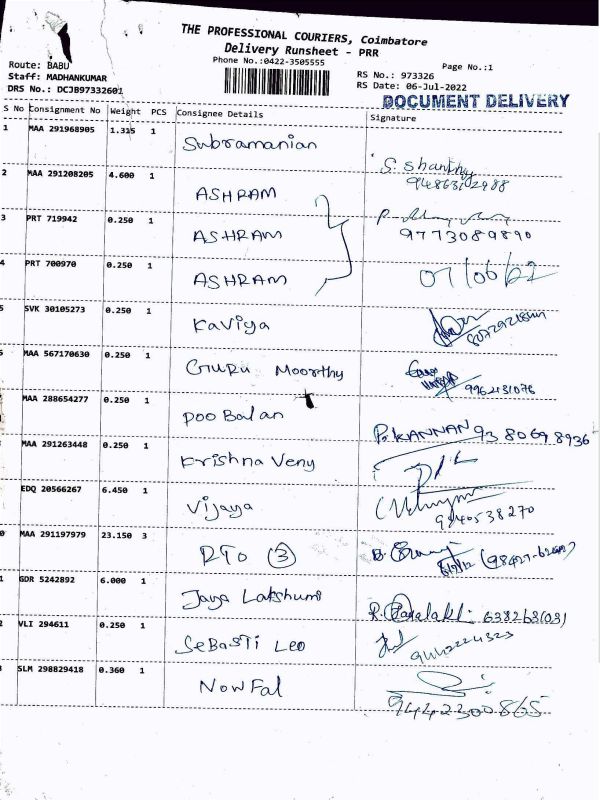 THE PROFESSIONAL COURIERS, Coimbatore
Delivery Runsheet - PRR
Phone No.:0422-3505555
Route: BABU
Staff: MADHANKUMAR
DRS No.: DCJB97332601
Page No.:1
RS No.: 973326
RS Date: 06-Jul-2022
DOCUMENT DELIVERY
S No Consignment No Weight PCS Consignee Details Signature
1 MAA 291968905 1.315 1 Subramanian
2 MAA 291208205 4.600 1 ASHRAM S. Shanthy
3 PRT 719942 0.250 1 ASHRAM 9773089890
4 PRT 700970 0.250 1 ASHRAM
5 SVK 30105273 0.250 1 Kaviya
6 MAA 567170630 0.250 1 GURU Moorthy
MAA 288654277 0.250 1 Poo Balan P. KANNAN 93 8069 8936
MAA 291263448 0.250 1 Krishna Veny
EDQ 20566267 6.450 1 Vijaya 9840538270
0 MAA 291197979 23.150 3 RTO 3
1 GDR 5242892 6.000 1 Jaya Lakshumi
2 VLI 294611 0.250 1 SeBaSTi Leo
3 SLM 298829418 0.360 1 NowFal 9442300865